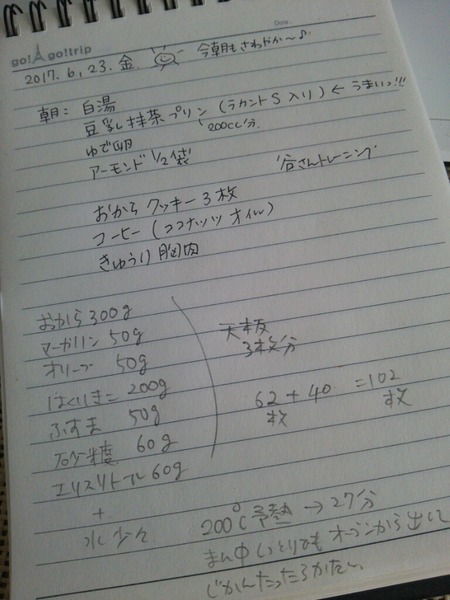 go! go!trip
Date
2017. 6. 23. 金 今朝もさわやか〜♪
朝: 白湯
豆乳抹茶プリン (ラカントS入り) ← うまいっ!!!
200cc分
ゆで卵
アーモンド 1/2袋
トレーニング
おからクッキー3枚
コーヒー (ココナッツオイル)
きゅうり 胸肉
おから 300g
マーガリン 50g
オリーブ 50g
はくりきこ 200g
ふすま 50g
砂糖 60g
エリスリトール 60g
+
水少々
天板
3枚分
62枚 + 40 = 102枚
200℃予熱 → 27分
まん中しっとりでもオーブンから出して
じかんたったらかたい